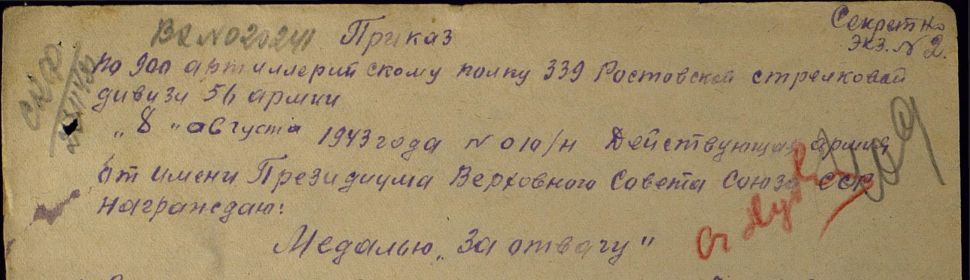 Секретно
Экз. N 2.
Вх N020241
Приказ
По 900 артиллерийскому полку 339 Ростовской стрелковой
дивизи 56 армии
„8" августа 1943 года N 010/н Действующая армия
От имени Президиума Верховного Совета Союза ССР
награждаю:
Медалью „За отвагу"